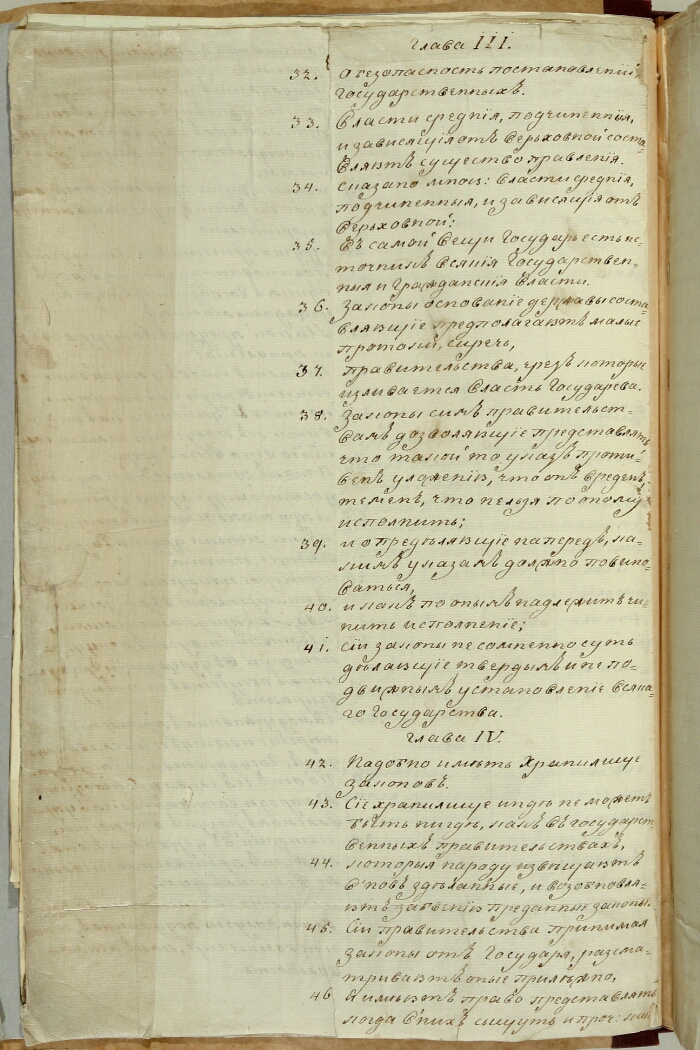 Глава III.
32. О безопасность постановленій
государственныхъ.
33. Власти среднія, подчиненныя,
и зависящія отъ верьховной соста-
вляютъ существо правленія.
34. Сказано мною: власти среднія,
подчиненныя, и зависящія отъ
верьховной:
35. Въ самой вещи Государь есть ис-
точникъ всякія Государствен-
ныя и Гражданскія власти.
36. Законы основаніе державы соста-
вляющіе предполагаютъ малые
протоки, сирѣчь,
37. правительства, чрезъ которые
изливается власть Государева.
38. Законы симъ правительст-
вамъ дозволяющіе представлять
что такой то указъ проти-
венъ уложенію, что онъ вреденъ,
теменъ, что нельзя по оному
исполнить;
39. и опредѣляющіе напередъ, ка-
кимъ указамъ должно повино-
ваться,
40. и какъ по онымъ надлежитъ чи-
нить исполненіе;
41. сіи законы несомненно суть
дѣлающіе твердымъ и непо-
движнымъ установленіе всяка-
го Государства.
Глава IV.
42. Надобно имѣть хранилище
законовъ.
43. Сіе хранилище индѣ не можетъ
быть нигдѣ, какъ въ государст-
венныхъ правительствахъ,
44. которыя народу извѣщаютъ
вновъ здѣланные, и возобновля-
ютъ забвенію преданные законы.
45. Сіи правительства принимая
законы отъ Государя, разсма-
триваютъ оные прилѣжно,
46 и имѣютъ право представлять
когда в нихъ сыщутъ и проч: на